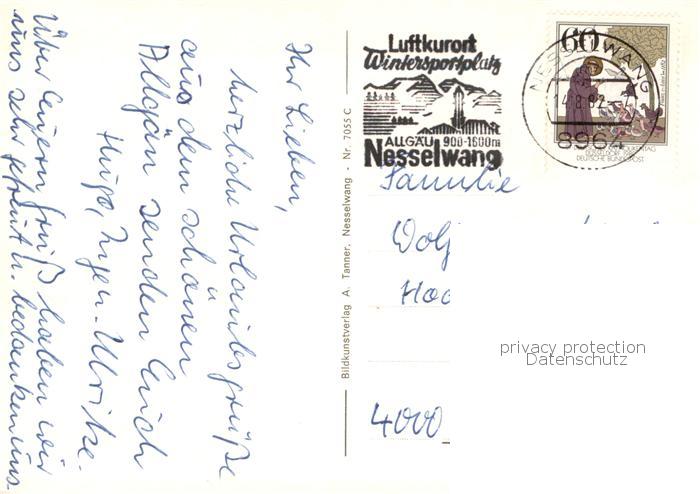 Ihr Lieben,
herzliche Urlaubsgrüße
aus dem schönen
Allgäu senden Euch
Hugo, Ingen. Ulrike.
Über Euern Gruß haben wir
uns sehr gefreut u. bedanken uns.
Bildkunstverlag A. Tanner, Nesselwang - Nr. 7055 C
Luftkurort
Wintersportplatz
ALLGÄU 900-1600m
Nesselwang
NESSELWANG
14.8.82
8964
60
DEUTSCHE BUNDESPOST
Familie
Wolf
Haa
4000
privacy protection
Datenschutz